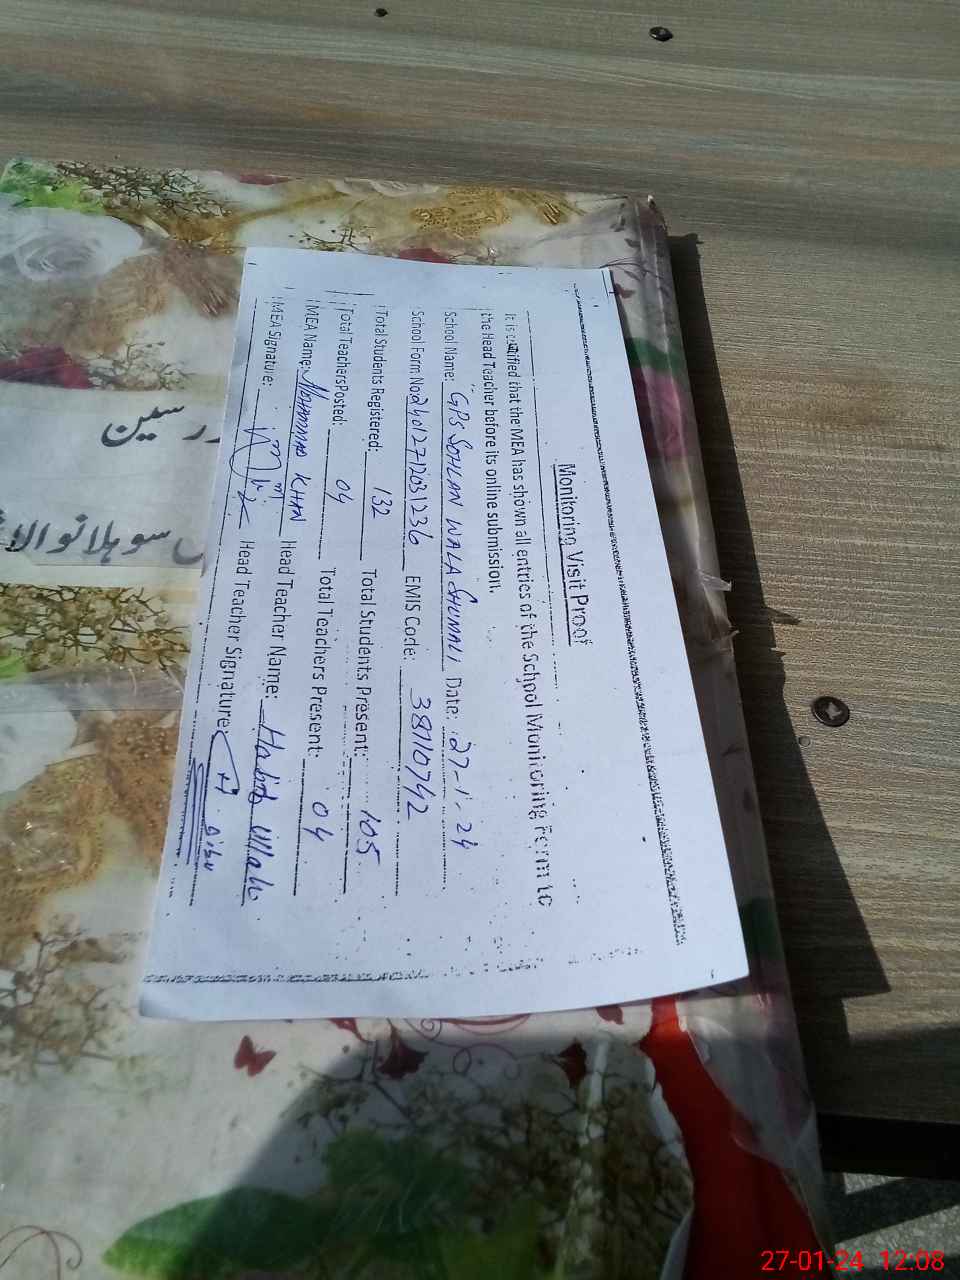 Monitoring Visit Proof
It is certified that the MEA has shown all entries of the School Monitoring Form to
the Head Teacher before its online submission.
School Name: GPS SOHLAN WALA GHUNALI Date: 27-1-24
School Form No: 24012712031236 EMIS Code: 38110742
Total Students Registered: 132 Total Students Present: 105
Total Teachers Posted: 04 Total Teachers Present: 04
MEA Name: MOHAMMAD KHAN Head Teacher Name: Habib Ullah
MEA Signature: Head Teacher Signature:
سوہلانوالا
27-01-24 12:08